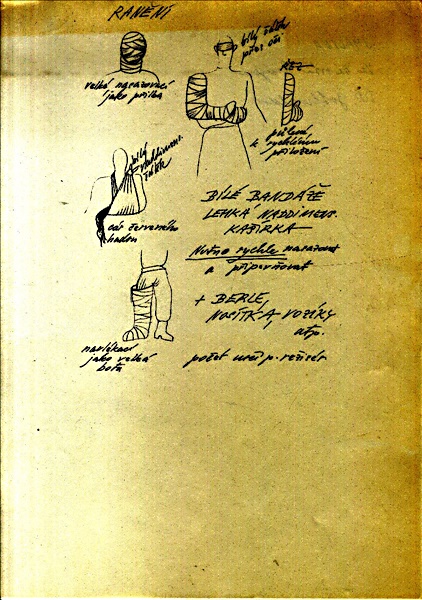 RANĚNÍ
velká narazovací
jako přilba
bílý šátek
přes oči
ŘEZ
k rychlému
přiložení
bílý
naddimenz.
šátek
cár červeného
BÍLÉ BANDÁŽE
LEHKÁ NADDIMENZ.
KAŠÍRKA
Nutno rychle narazovat
a připevňovat
+ BERLE,
NOSÍTKA, VOZÍKY
atp.
navlékací
jako velká
bota
počet určí p. režisér